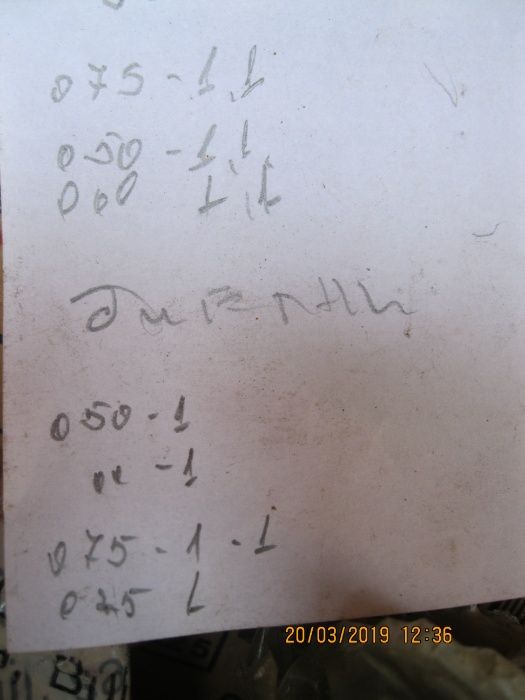 075 - 1,1
050 - 1,1
060 1,1
050 - 1
" - 1
075 - 1 - 1
075 1
20/03/2019 12:36